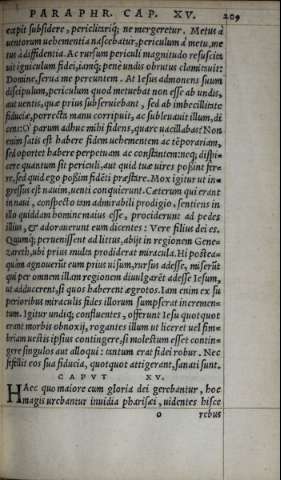 PARAPHR. CAP. XV. 209
cœpit subsidere, periclitariq́; ne mergeretur. Metus à
uentorum uehementia nascebatur, periculum à metu, me
tus à diffidentia. Ac rursum periculi magnitudo resusci
uit igniculum fidei, iamq́; penè undis obrutus clamitauit:
Domine, serua me pereuntem. At Iesus admonens suum
discipulum, periculum quod metuebat non esse ab undis,
aut uentis, quæ prius subseruiebant, sed ab imbecillitate
fiduciæ, porrecta manu corripuit, ac subleuauit illum, di
cens: O parum adhuc mihi fidens, quare uacillabas? Non
enim satis est habere fidem uehementem ac têporariam,
sed oportet habere perpetuam ac constantem: necq́; dispi-
cere quantum sit periculi, aut quid tuæ uires possint fer-
re, sed quid ego possim fidēti præstare. Mox igitur ut in-
gressus est nauim, uenti conquierunt. Cæterum qui erant
in naui, conspecto tam admirabili prodigio, sentiens in
illo quiddam homine maius esse, prociderunt ad pedes
illius, & adorauerunt eum dicentes: Vere filius dei es.
Quumq́; peruenissent ad littus, abijt in regionem Gene-
zareth, ubi prius multa prodiderat miracula. Hi postea-
quàm agnouerūt eum prius uisum, rursus adesse, miserūt
qui per omnem illam regionem diuulgarēt adesse Iesum,
ut adducerent, si quos haberent ægrotos. Iam enim ex su
perioribus miraculis fides illorum sumpserat incremen-
tum. Igitur undiq; confluentes, offerunt Iesu quotquot
erant morbis obnoxij, rogantes illum ut liceret uel fim-
briam uestis ipsius contingere, si molestum esset contin-
gere singulos aut alloqui: tantum erat fidei robur. Nec
fefellit eos sua fiducia, quotquot attigerant, sanati sunt.
CAPVT XV.
HAec quo maiore cum gloria dei gerebantur, hoc
magis urebantur inuidia pharisæi, uidentes hisce
o rebus